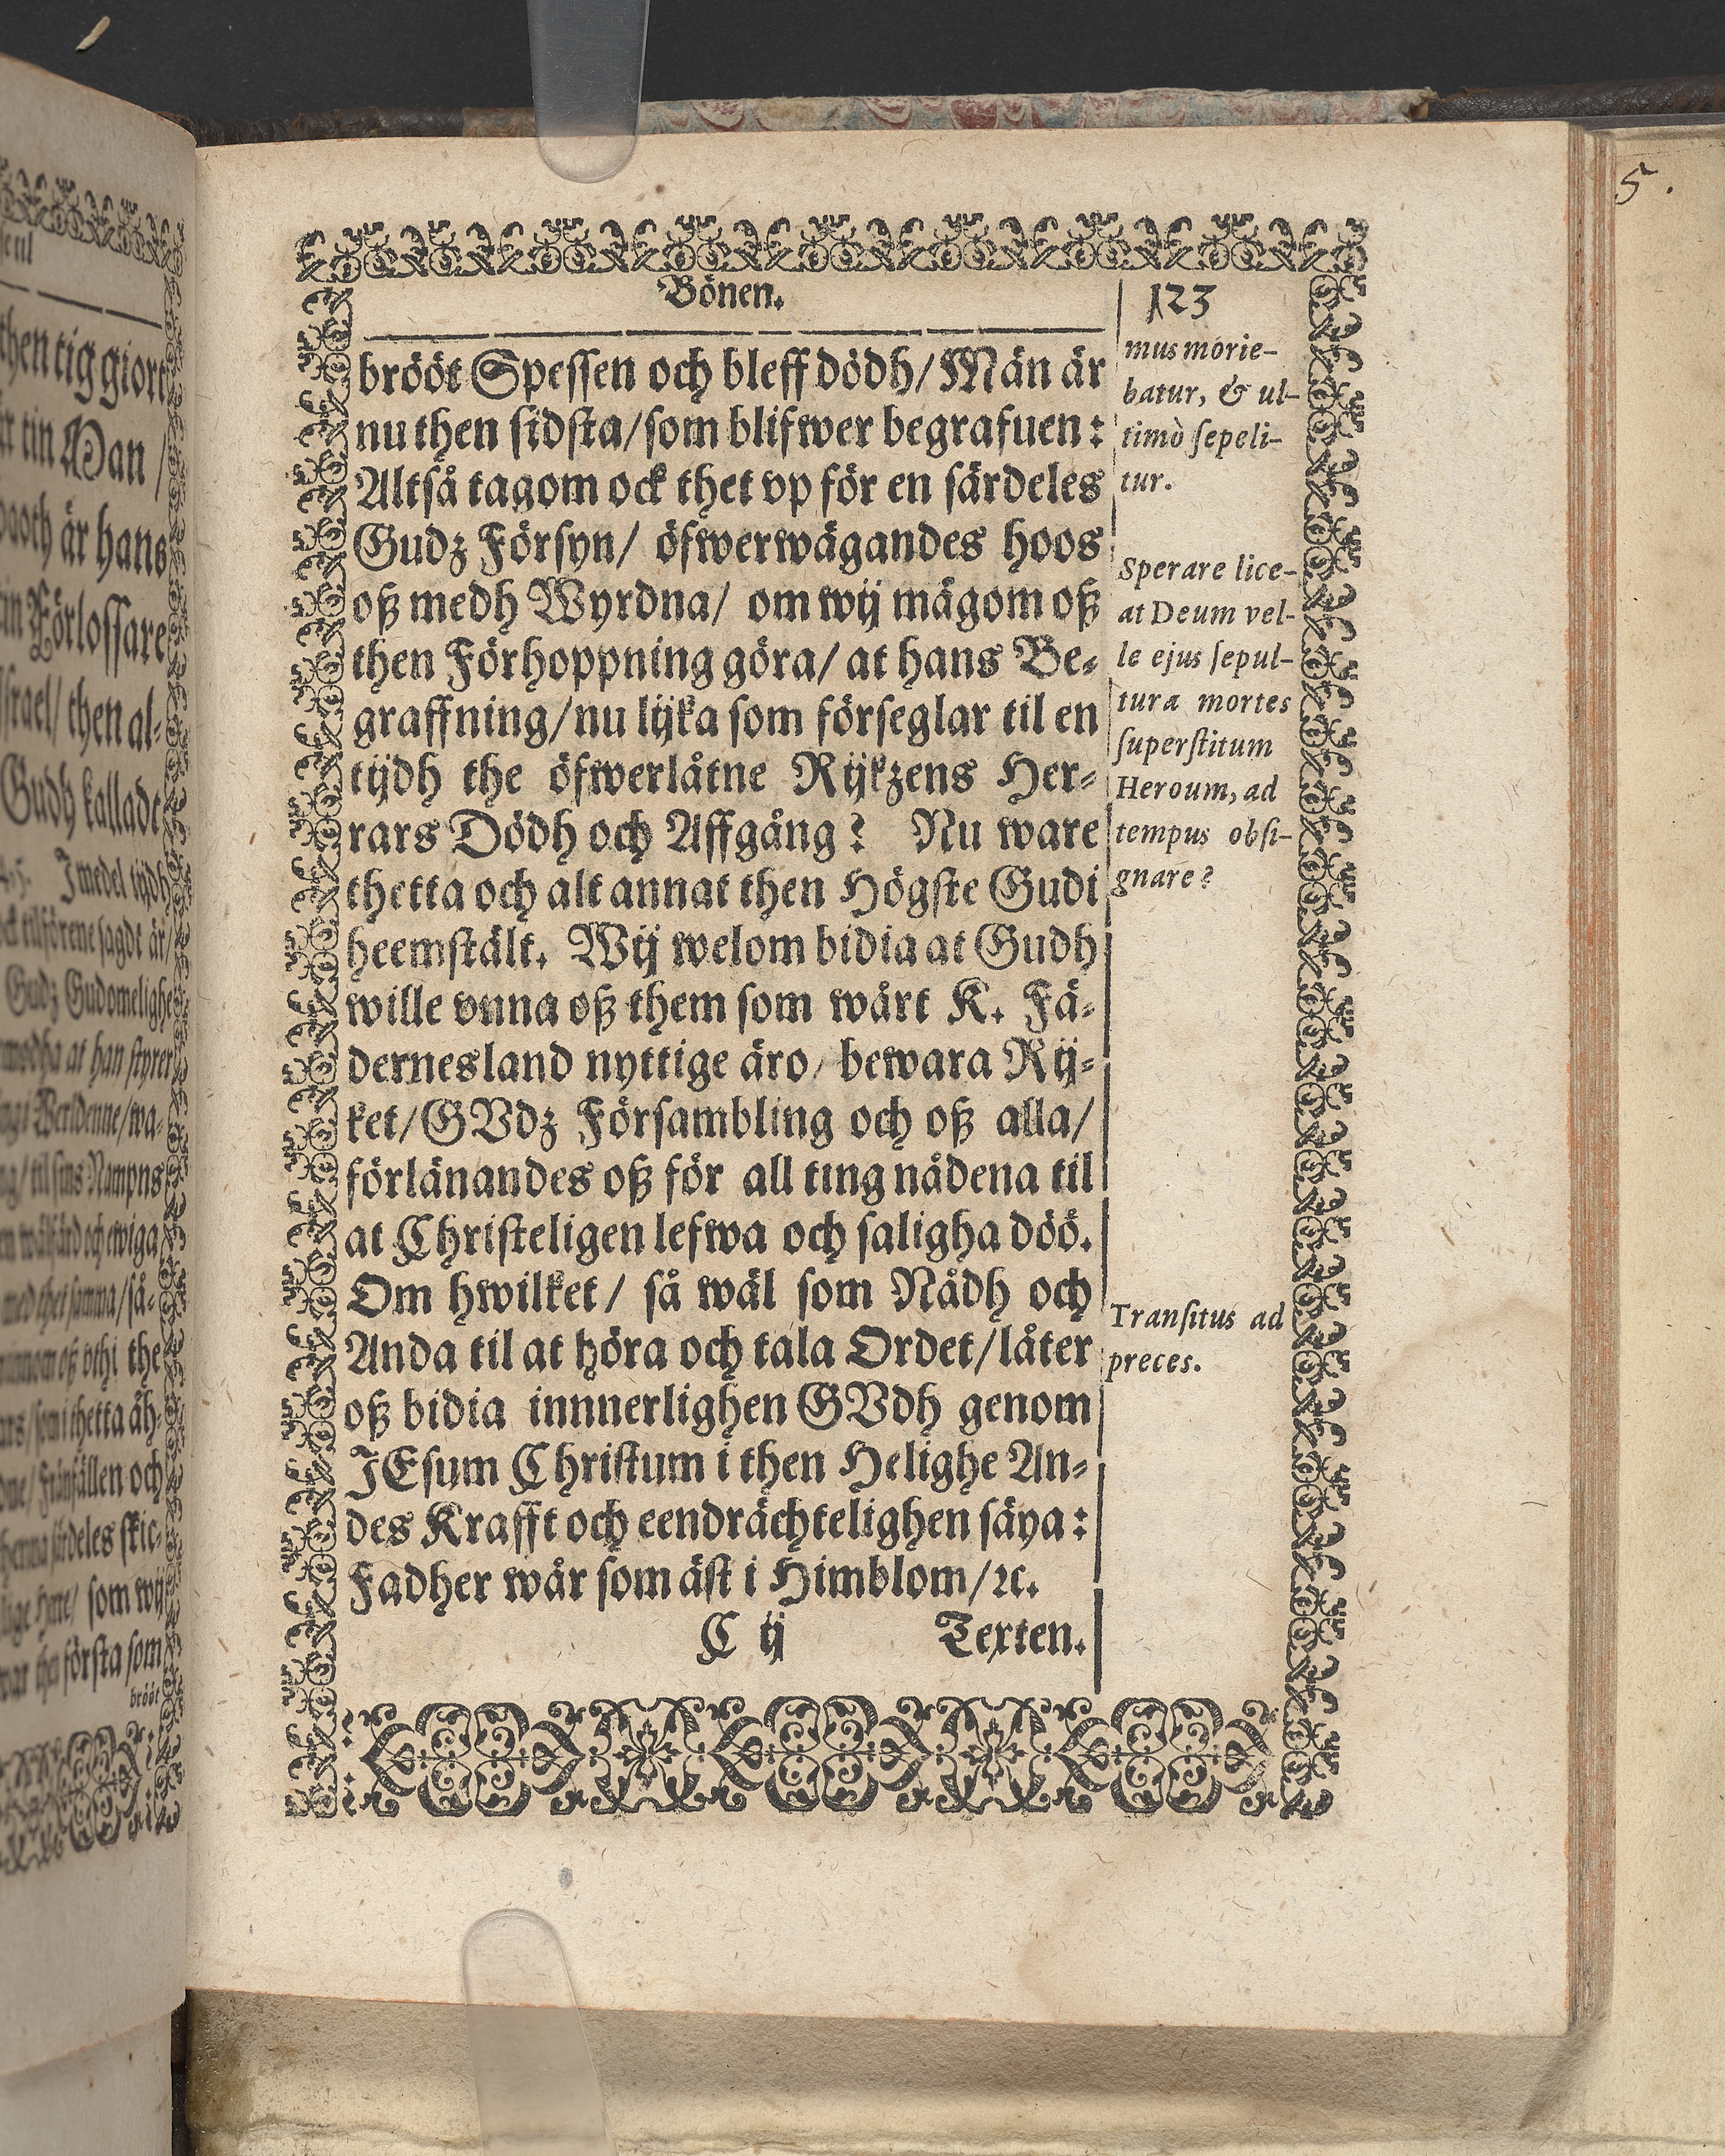 Bönen.
123
brööt Spessen och bleff dödh/ Män är
nu then sidsta/ som blifwer begrafuen:
Altså tagom ock thet vp för en särdeles
Gudz Försyn/ öfwerwägandes hoos
oß medh Wyrdna/ om wij mågom oß
then Förhoppning göra/ at hans Be-
graffning/ nu lijka som förseglar til en
tijdh the öfwerlåtne Rijkzens Her-
rars Dödh och Affgång? Nu ware
thetta och alt annat then Högste Gudi
heemstält. Wij welom bidia at Gudh
wille vnna oß them som wårt K. Fä-
dernesland nyttige äro/ bewara Rij-
ket/ GVdz Försambling och oß alla/
förlänandes oß för all ting nådena til
at Christeligen lefwa och saligha döö.
Om hwilket/ så wäl som Nådh och
Anda til at höra och tala Ordet/ låter
oß bidia innnerlighen GVdh genom
JEsum Christum i then Helighe An-
des Krafft och eendrächtelighen säya:
Fadher wår som äst i Himblom/ ꝛc.
C ij Texten.
mus morie-
batur, & ul-
timò sepeli-
tur.
Sperare lice-
at Deum vel-
le ejus sepul-
tura mortes
superstitum
Heroum, ad
tempus obsi-
gnare?
Transitus ad
preces.
5.
then tig giort
tin Man /
är hans
Förlossare
Israel/ then al-
Gudh kallade
J medel tijdh
tilförene sagdt är/
Gudz Gudomelighe
at han styrer
til sins Nampns
och ewiga
the
som i thetta åh-
och
särdeles skic-
som wij
första som
brööt